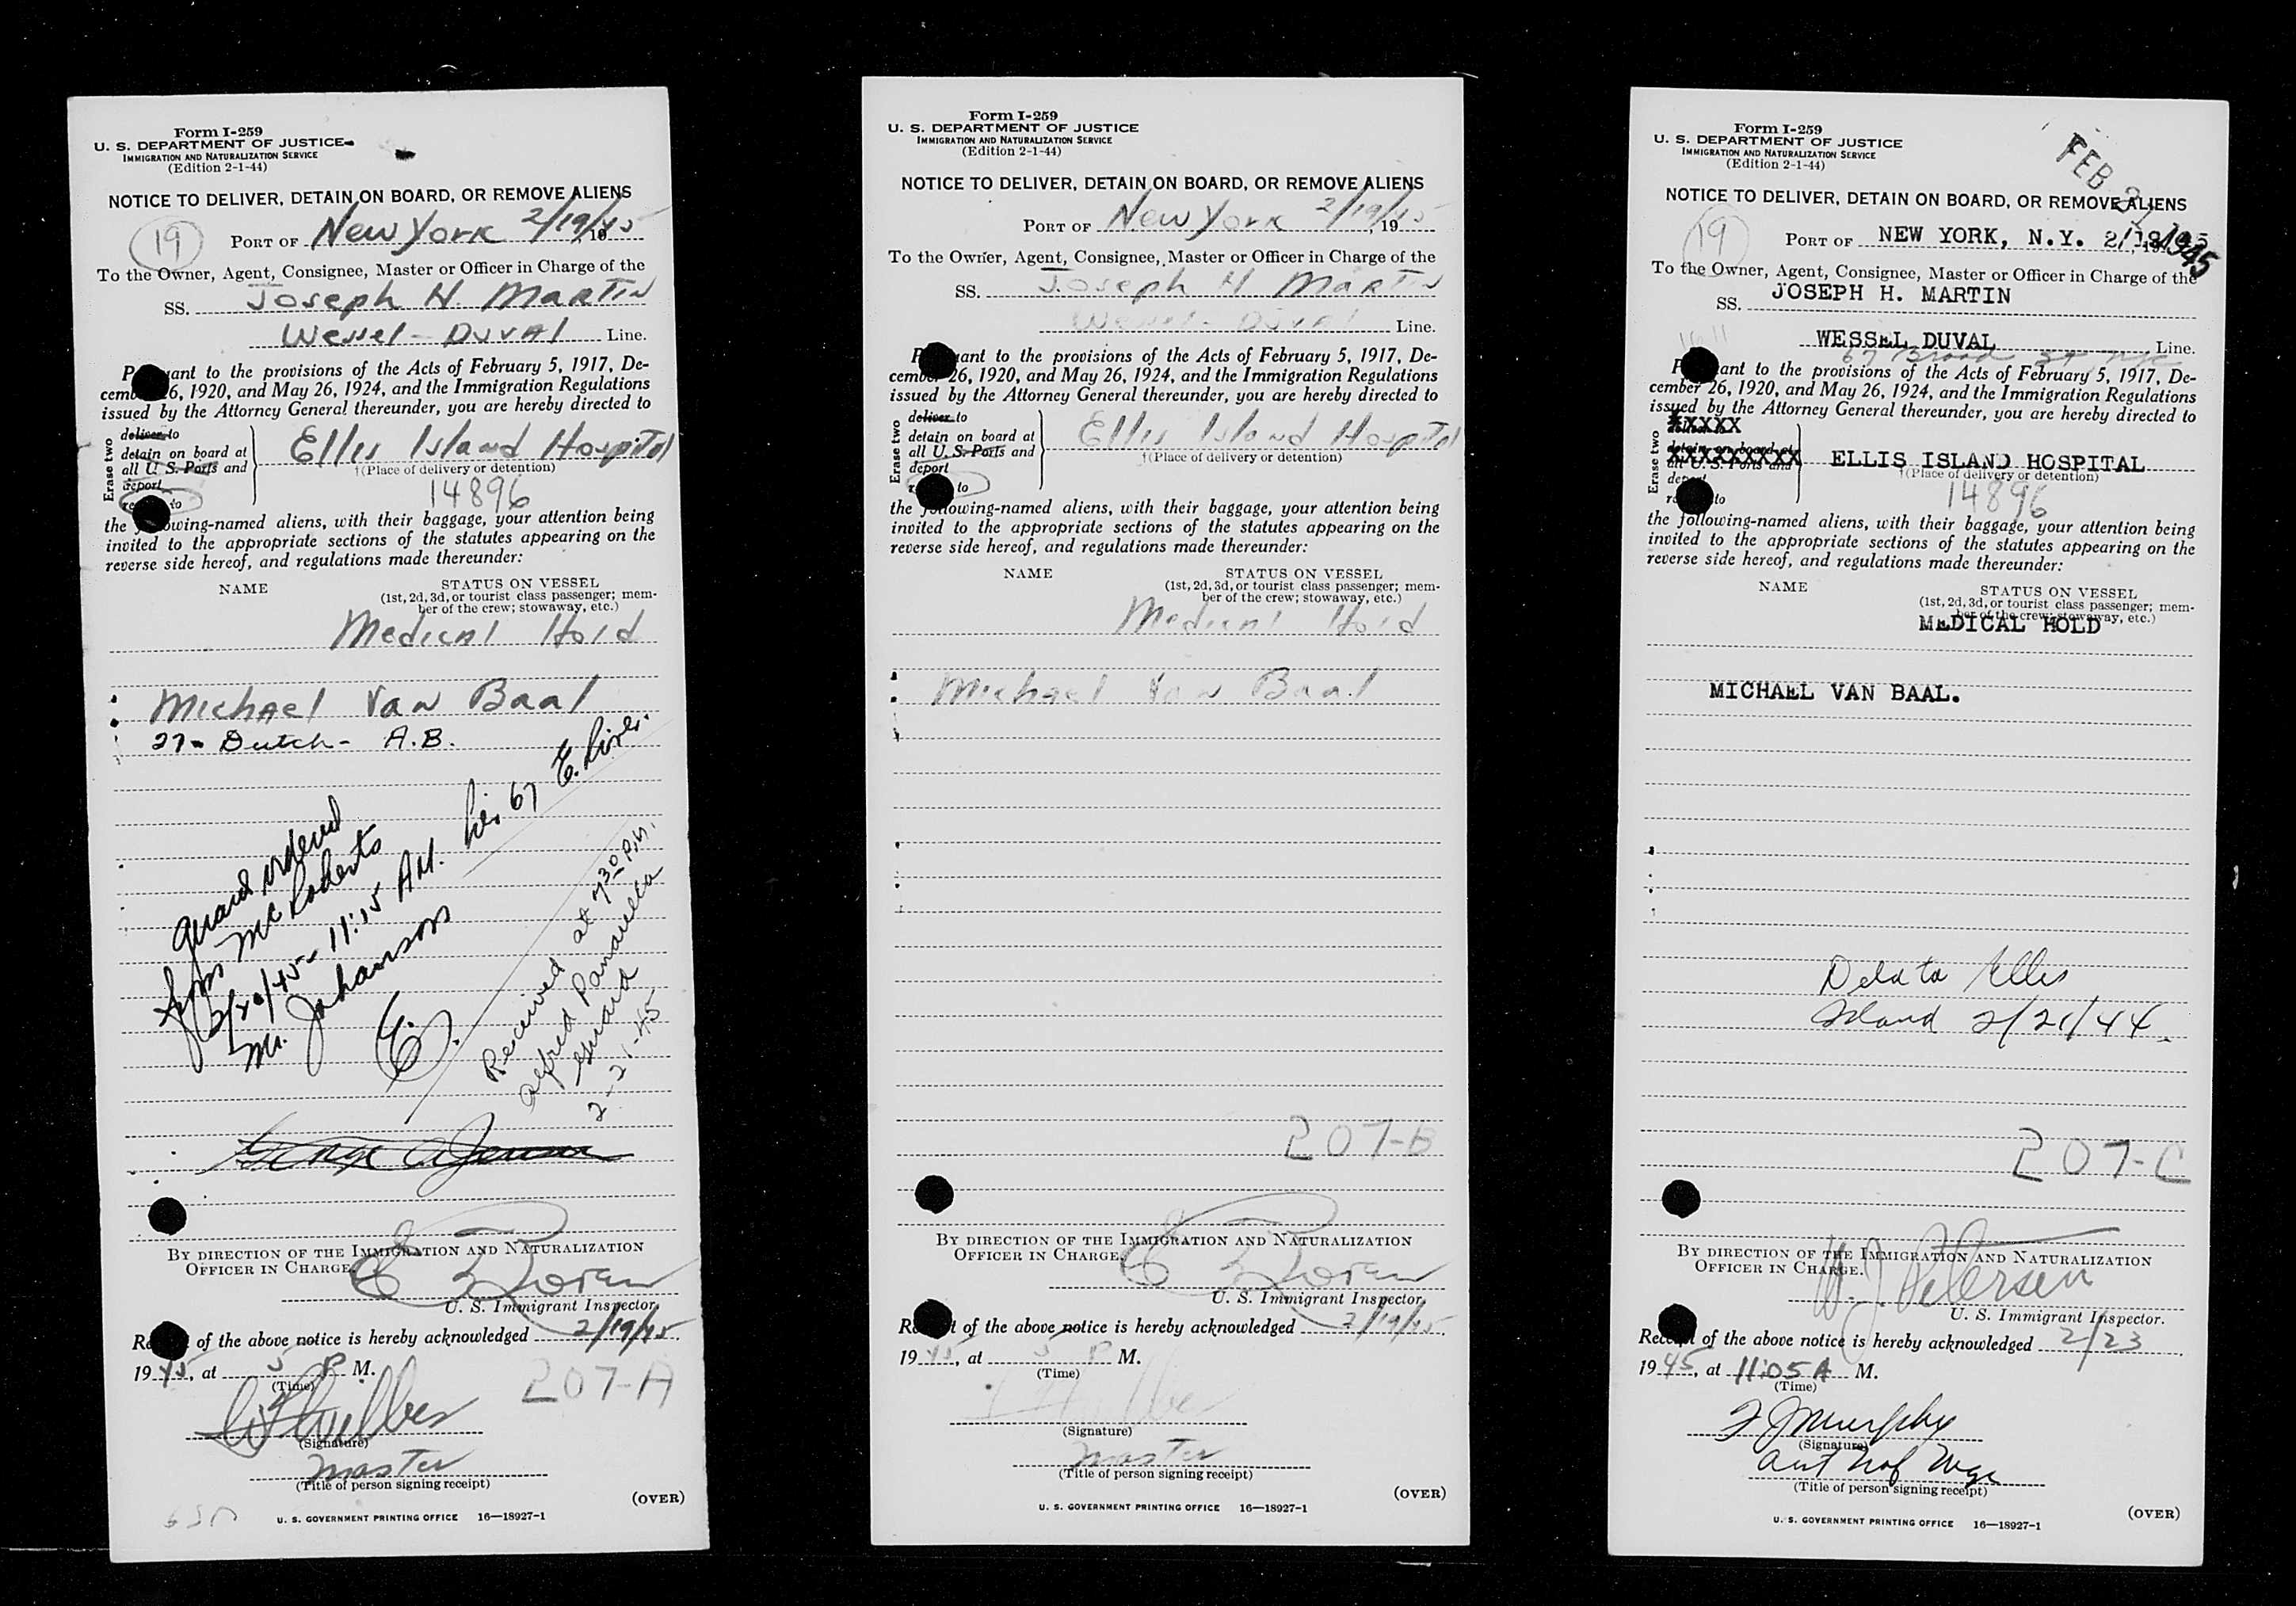 Form I-259
U. S. DEPARTMENT OF JUSTICE
IMMIGRATION AND NATURALIZATION SERVICE
(Edition 2-1-44)
NOTICE TO DELIVER, DETAIN ON BOARD, OR REMOVE ALIENS
19
PORT OF New York 2/19/45, 19
To the Owner, Agent, Consignee, Master or Officer in Charge of the
SS. Joseph H. Martin
Wessel-Duval Line.
P ant to the provisions of the Acts of February 5, 1917, De-
cemb 6, 1920, and May 26, 1924, and the Immigration Regulations
issued by the Attorney General thereunder, you are hereby directed to
Erase two
deliver to
detain on board at
all U. S. Ports and
deport
re to
Ellis Island Hospital
†(Place of delivery or detention)
14896
the owing-named aliens, with their baggage, your attention being
invited to the appropriate sections of the statutes appearing on the
reverse side hereof, and regulations made thereunder:
NAME
STATUS ON VESSEL
(1st, 2d, 3d, or tourist class passenger; mem-
ber of the crew; stowaway, etc.)
Medical Hold
Michael Van Baal
27- Dutch- A.B.
guard ordered
from McRoberts
2/20/45- 11:15 AM. Pier 67 E. River.
Mr. Johanson
E.
Received at 7 30 P.M.
Alfred
guard
2-21-45
BY DIRECTION OF THE IMMIGRATION AND NATURALIZATION
OFFICER IN CHARGE.
U. S. Immigrant Inspector.
Re of the above notice is hereby acknowledged 2/19/45.
1945, at 5 P M.
(Time)
207-A
(Signature)
Master
(Title of person signing receipt)
(OVER)
U. S. GOVERNMENT PRINTING OFFICE 16—18927-1
Form I-259
U. S. DEPARTMENT OF JUSTICE
IMMIGRATION AND NATURALIZATION SERVICE
(Edition 2-1-44)
NOTICE TO DELIVER, DETAIN ON BOARD, OR REMOVE ALIENS
PORT OF New York 2/19/45, 19
To the Owner, Agent, Consignee, Master or Officer in Charge of the
SS. Joseph H Martin
Wessel-Duval Line.
P ant to the provisions of the Acts of February 5, 1917, De-
cember 26, 1920, and May 26, 1924, and the Immigration Regulations
issued by the Attorney General thereunder, you are hereby directed to
Erase two
deliver to
detain on board at
all U. S. Ports and
deport
r to
Ellis Island Hospital
†(Place of delivery or detention)
the following-named aliens, with their baggage, your attention being
invited to the appropriate sections of the statutes appearing on the
reverse side hereof, and regulations made thereunder:
NAME
STATUS ON VESSEL
(1st, 2d, 3d, or tourist class passenger; mem-
ber of the crew; stowaway, etc.)
Medical Hold
Michael Van Baal
207-B
BY DIRECTION OF THE IMMIGRATION AND NATURALIZATION
OFFICER IN CHARGE.
U. S. Immigrant Inspector.
Re t of the above notice is hereby acknowledged 2/19/45.
1945, at 5 P M.
(Time)
(Signature)
Master
(Title of person signing receipt)
(OVER)
U. S. GOVERNMENT PRINTING OFFICE 16—18927-1
Form I-259
U. S. DEPARTMENT OF JUSTICE
IMMIGRATION AND NATURALIZATION SERVICE
(Edition 2-1-44)
FEB 1945
NOTICE TO DELIVER, DETAIN ON BOARD, OR REMOVE ALIENS
19
PORT OF NEW YORK, N.Y.
To the Owner, Agent, Consignee, Master or Officer in Charge of the
SS. JOSEPH H. MARTIN
WESSEL DUVAL Line.
67 Broad St, NYC
P ant to the provisions of the Acts of February 5, 1917, De-
cember 26, 1920, and May 26, 1924, and the Immigration Regulations
issued by the Attorney General thereunder, you are hereby directed to
Erase two
XXXXX
detain on board at
XXXXXXXXXX
all U. S. Ports and
deport
r to
ELLIS ISLAND HOSPITAL
†(Place of delivery or detention)
14896
the following-named aliens, with their baggage, your attention being
invited to the appropriate sections of the statutes appearing on the
reverse side hereof, and regulations made thereunder:
NAME
STATUS ON VESSEL
(1st, 2d, 3d, or tourist class passenger; mem-
ber of the crew; stowaway, etc.)
MEDICAL HOLD
MICHAEL VAN BAAL.
Deld to Ellis
Island 2/21/44
207-C
BY DIRECTION OF THE IMMIGRATION AND NATURALIZATION
OFFICER IN CHARGE.
W. J. Petersen
U. S. Immigrant Inspector.
Receipt of the above notice is hereby acknowledged 2/23
1945, at 11:05 A M.
(Time)
F J Murphy
(Signature)
(Title of person signing receipt)
(OVER)
U. S. GOVERNMENT PRINTING OFFICE 16—18927-1